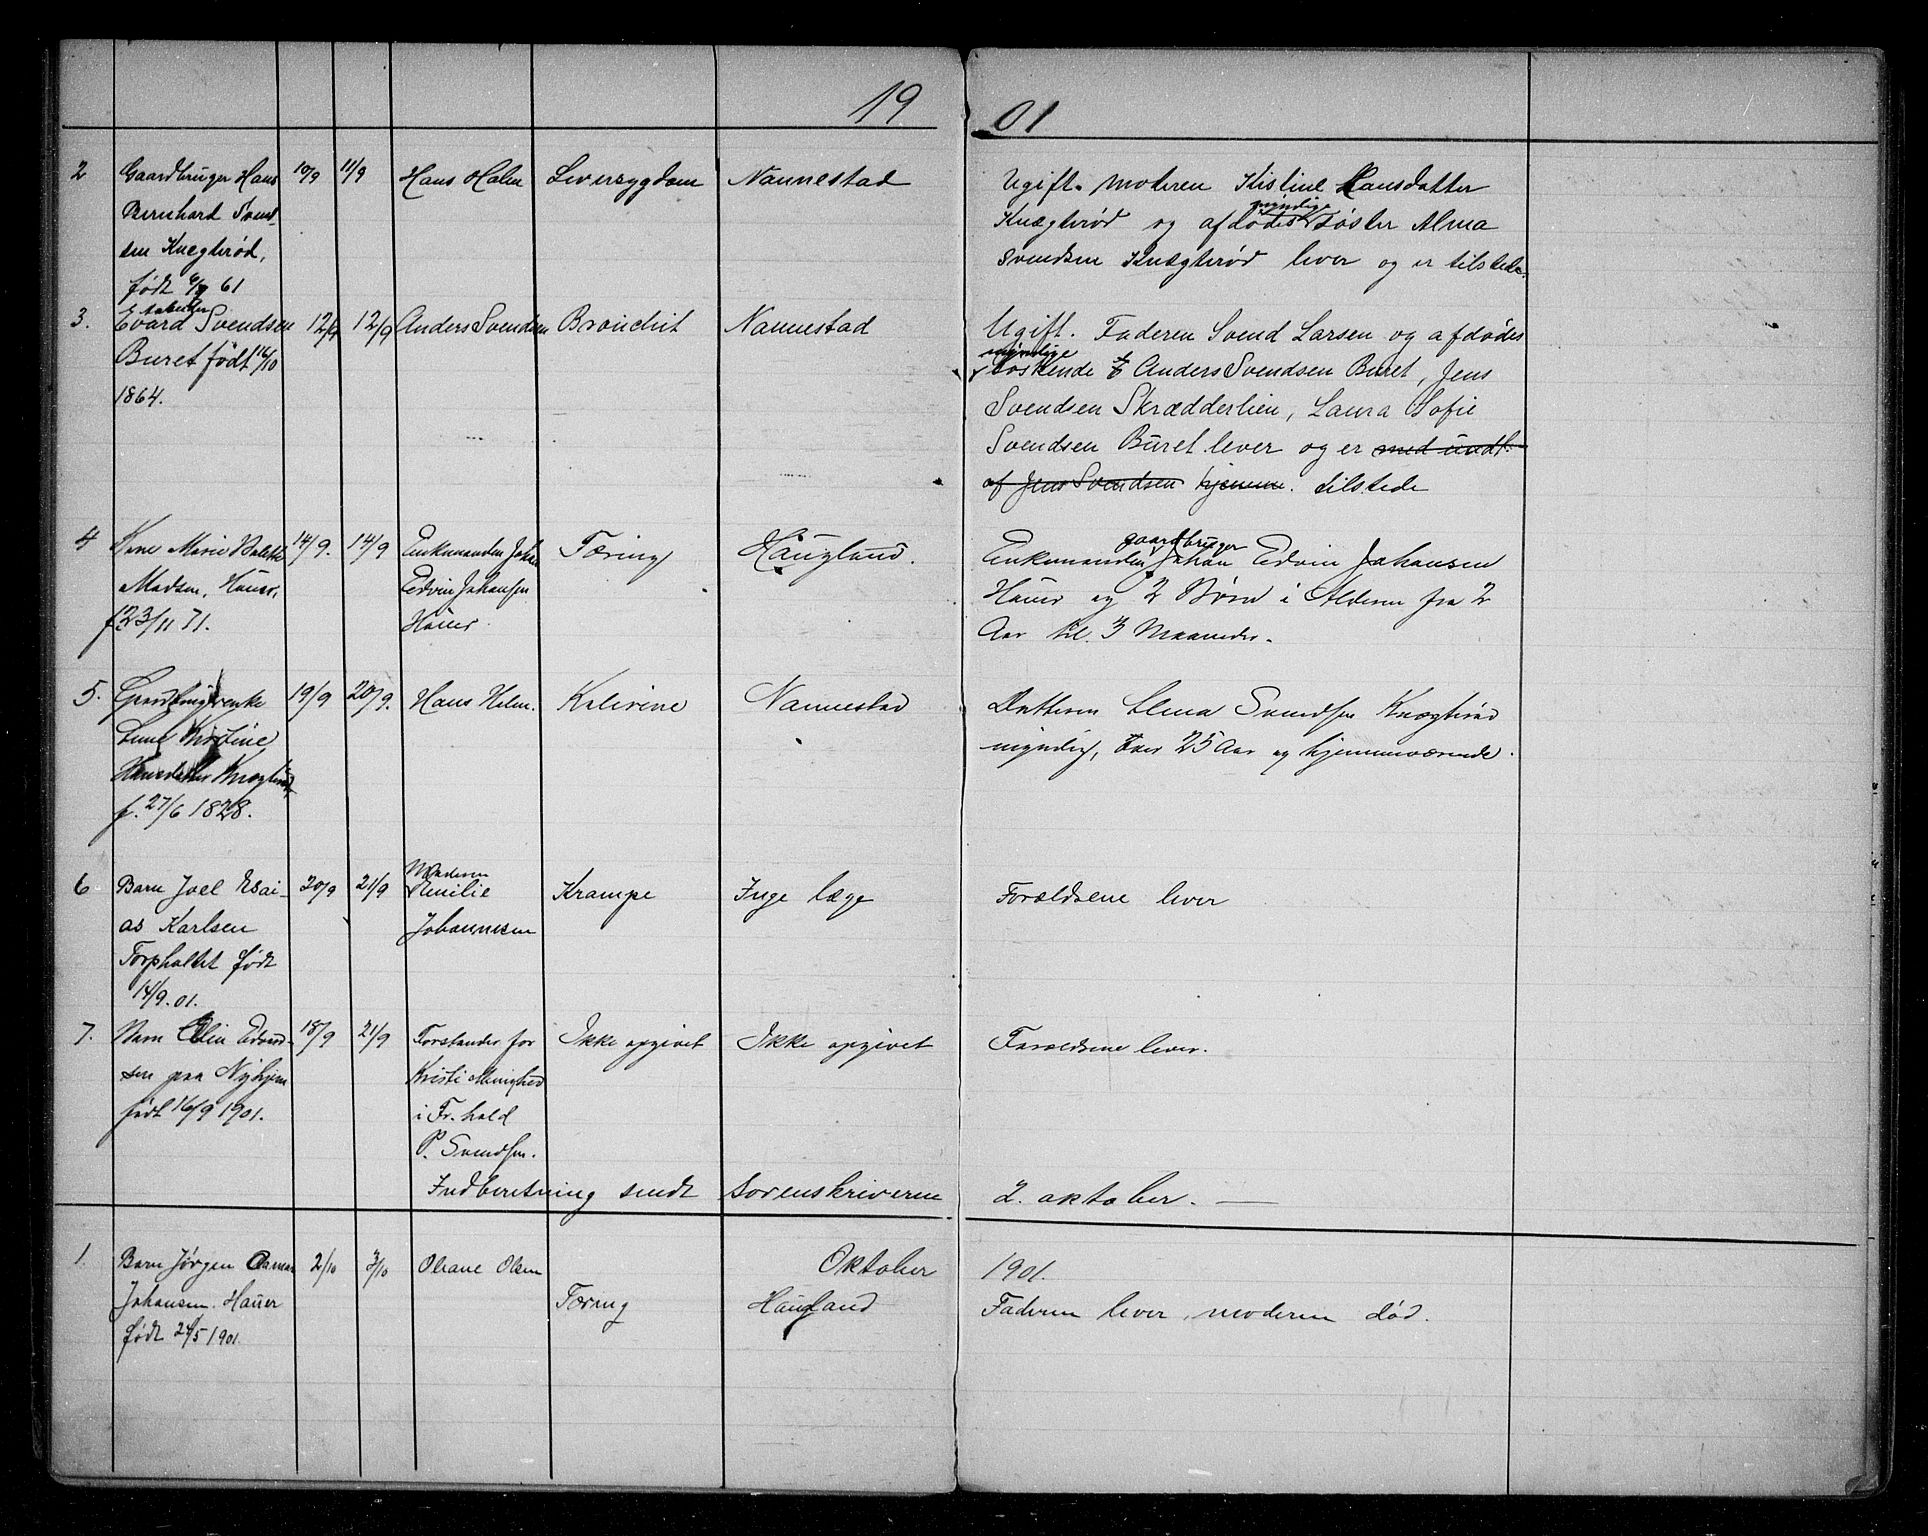 1901
2 Gaardbruger Hans 10/9 11/9 Hans Holm Leversygdom Nannestad
Bernhard Svend-
sen Knægterød,
født 61
Ugift. Moderen Kistine Hansdatter
myndige
Knægterød og afdødes søster Alma
Svendsen Knægterød lever og er tilstede.
3. Evard Svendsen 12/9 12/9 Anders Svendsen Bronchit Nannestad
Buret født 16/10
1864.
Ugift. Faderen Svend Larsen og afdødes
myndige
søskende Anders Svendsen Buret, Jens
Svendsen Skrædderlien, Laura Sofie
Svendsen Buret lever og er med undt.
af Jens Svendsen hjemme. tilstede
4 Kone Marie 14/9. 14/9 Enkemanden Johan Tæring Haugland.
Madsen, Hauer, Edvin Johansen
f. 23/11 71. Hauer
gaardbruger
Enkemanden Johan Edvin Johansen
Hauer og 2 Børn i Alderen fra 2
Aar til 3 Maaneder.
5. Gaardbrugerenke 19/9 20/9. Hans Holm. Kolerine Nannestad
Kirstine
Hansdatter Knægterød
f. 27/6 1828.
Datteren Alma Svendsen Knægterød
myndig, over 25 Aar og hjemmeværende.
6 Barn Joel Esai- 20/9 21/9 Moderen Krampe Inge læge
as Karlsen Emilie
Torpholtet født Johannesen
14/9.01.
Forældrene lever
7. Barn Elin Edvard- 18/9 21/9 Forstander for Ikke opgivet Ikke opgivet
sen paa Nyhjem Kristi Menighed
født 16/9 1901. i Fr.hald
P. Svendsen.
Forældrene lever.
Indberetning sendt Sorenskriveren 2. oktober.
Oktober 1901.
1. Barn Jørgen 2/10 3/10 Oliane Olsen Tæring Haugland
Johansen. Hauer
født 24/5 1901.
Faderen lever, moderen død.